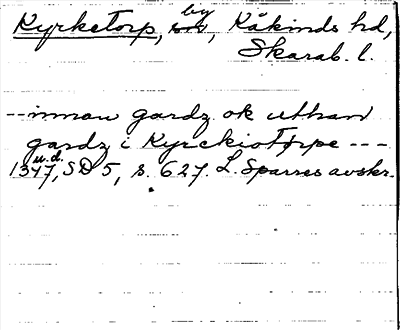 Kyrketorp, by, Kåkinds hd,
Skarab. l.
-- innan gardz ok uthan
gardz i Kyrckiotorpe ---
1347, u.d. SD 5, s. 627. L. Sparres avskr.